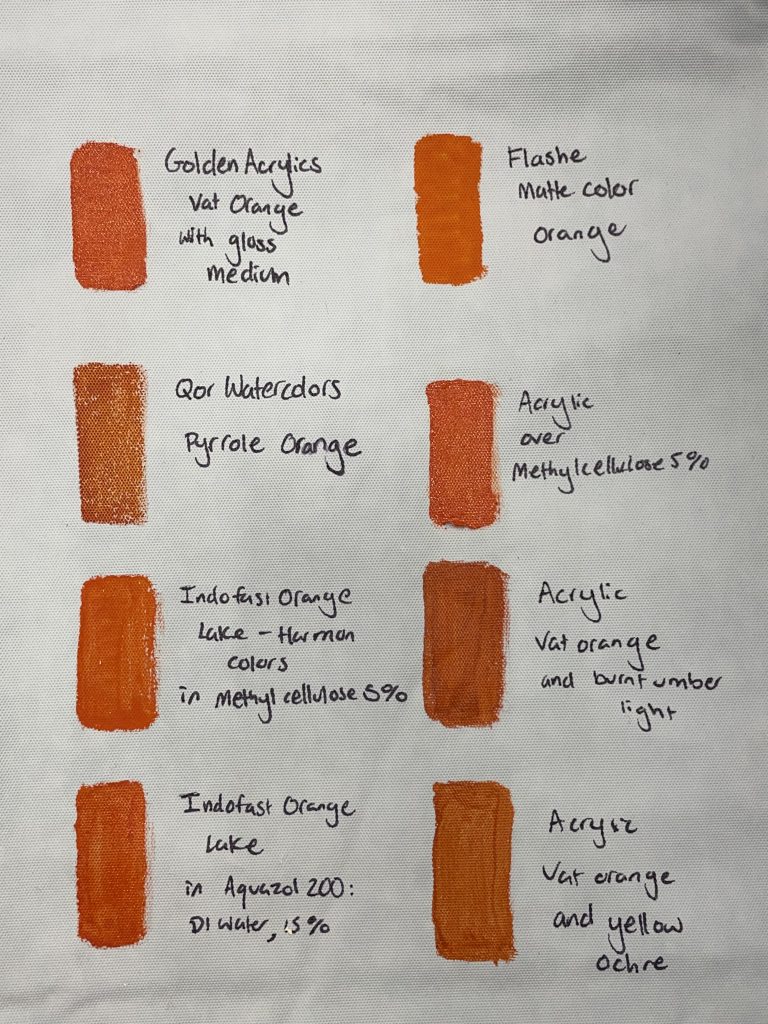 Golden Acrylics
Vat Orange
with gloss
medium
Flashe
Matte color
orange
Qor Watercolors
Pyrrole Orange
Acrylic
over
Methylcellulose 5%
Indofast Orange
Lake - Harmon
colors
in Methyl cellulose 5%
Acrylic
Vat orange
and burnt umber
light
Indofast Orange
Lake
in Aquazol 200:
DI water, 15%
Acrylic
Vat orange
and yellow
ochre